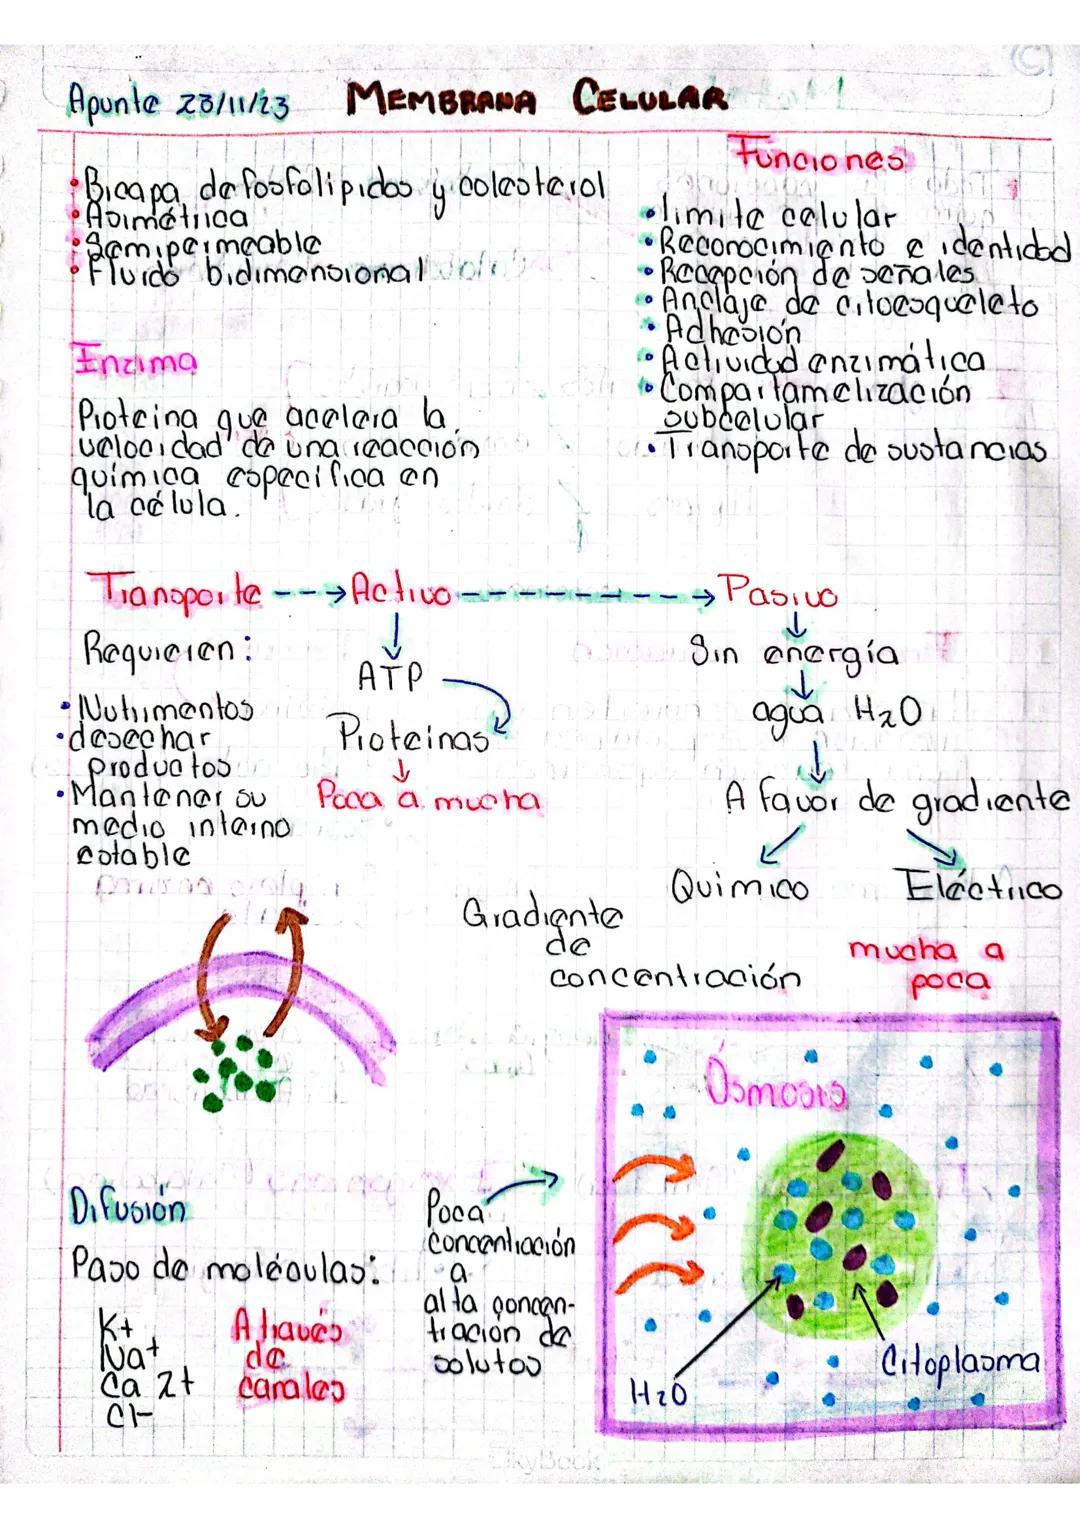 Apunte 23/11/23 MEMBRANA CELULAR
• Bicapa de fosfolípidos y colesterol
• Asimétrica
• Semipermeable
• Fluido bidimensional
Funciones
• límite celular
• Reconocimiento e identidad
• Recepción de señales
• Anclaje de citoesqueleto
• Adhesión
• Actividad enzimática
• Compartamelización
subcelular
• Transporte de sustancias
Enzima
Proteina que acelera la
velocidad de una reacción
química especifica en
la célula.
Transporte ---→ Activo ---------→ Pasivo
Requieren:
• Nutrimentos
• desechar
productos
• Mantener su
medio interno
estable
ATP
Proteinas
Poca a mucha
Sin energía
agua H2O
A favor de gradiente
Quimico Eléctrico
Gradiente
de
concentración
mucha a
poca
Difusión
Paso de moléculas:
K+
Na+
Ca 2+
Cl-
A través
de
canales
Poca
concentración
a
alta concen-
tración de
solutos
Ósmosis
H2O
Citoplasma